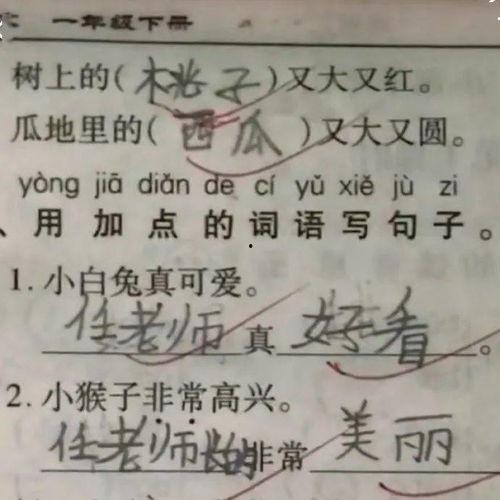 一年级下册
树上的(桃子)又大又红。
瓜地里的(西瓜)又大又圆。
yòng jiā diǎn de cí yǔ xiě jù zi
、用加点的词语写句子。
1. 小白兔真可爱。
任老师 真 好看。
2. 小猴子非常高兴。
任老师长的非常 美丽